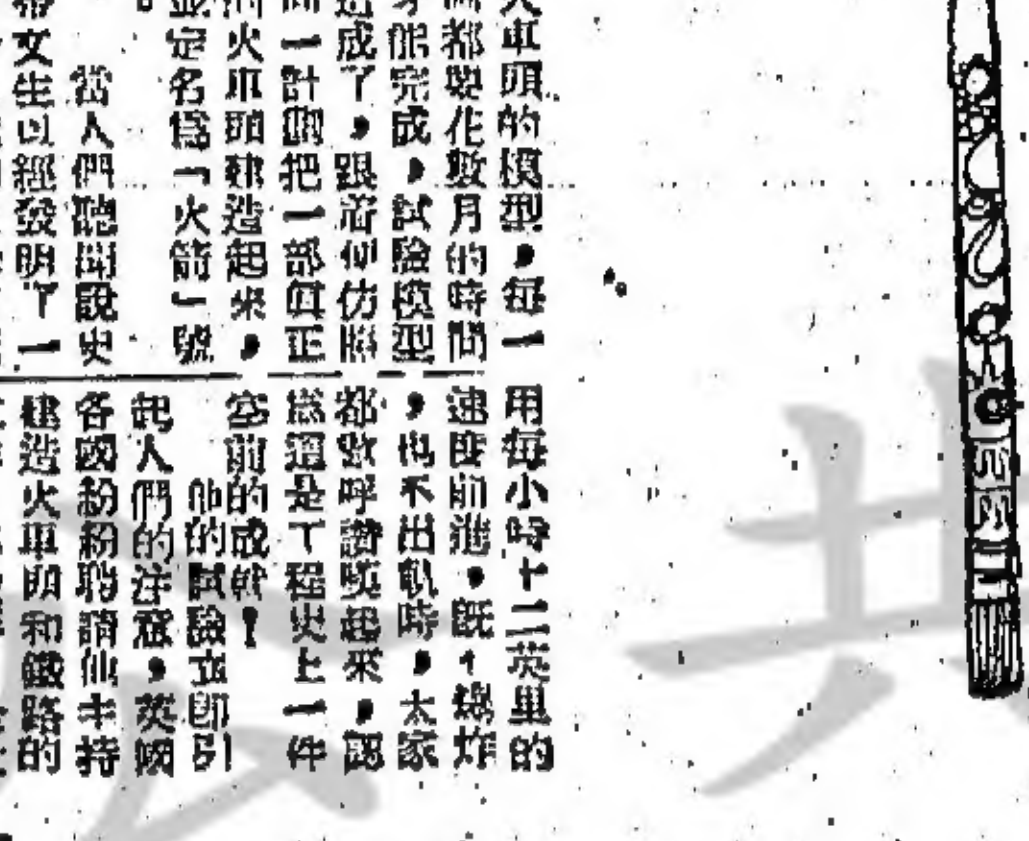 火車頭的模型，每一
都要花數月的時間
才能完成，試驗模型
造成了，跟着他仿照
一計劃把一部真正
的火車頭建造起來，
並定名爲「火箭」號
。
當人們聽聞說史
蒂文生以經發明了一
用每小時十二英里的
速度前進。既不爆炸
，也不出軌時，太家
都歡呼讚嘆起來，認
爲這是工程史上一件
空前的成績！
他的試驗立即引
起人們的注意，英國
各國紛紛聘請他主持
建造火車頭和鐵路的